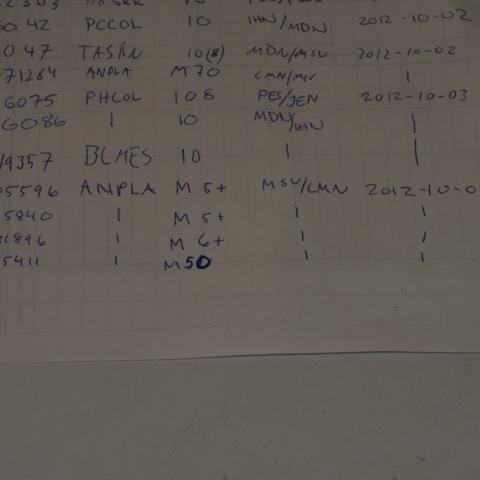 6042 PCCOL 10 IHN/MDN 2012-10-02
6047 TASÁN 10(8) MDN/MSV 2012-10-02
71264 ANPLA M70 CMN/MSV |
6075 PHCOL 108 PES/JEN 2012-10-03
6086 | 10 MDN/IHN |
19357 BLMES 10 | |
05596 ANPLA M 5+ MSV/CMN 2012-10-0
5840 | M 5+ | |
1896 | M 6+ | |
5411 | M50 | |